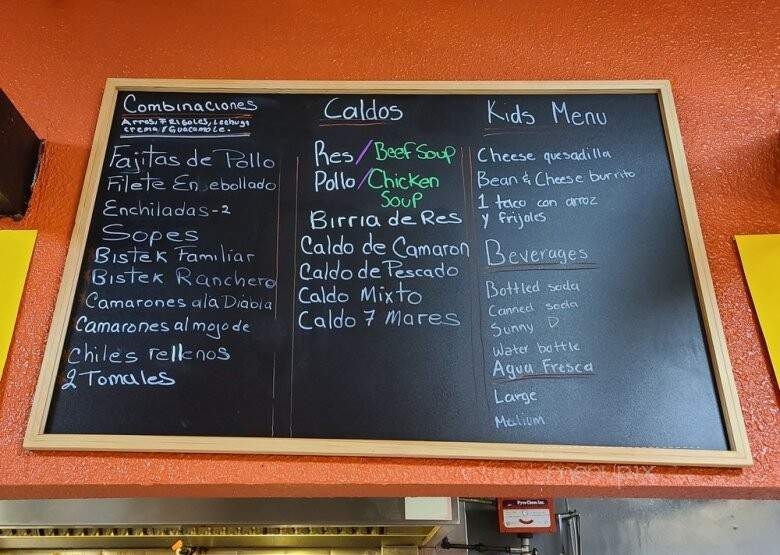 Combinaciones
Arros, Frisoles, Lechuga
crema/Guacamole.
Fajitas de Pollo
Filete En ebollado
Enchiladas-2
Sopes
Bistek Familiar
Bistek Ranchero
Camarones ala Diabla
Camarones al mojo de
Chiles rellenos
2 Tomales
Caldos
Res/Beef Soup
Pollo/Chicken
Soup
Birria de Res
Caldo de Camaron
Caldo de Pescado
Caldo Mixto
Caldo 7 Mares
Kids Menu
Cheese quesadilla
Bean & Cheese burrito
1 taco con arroz
y frijoles
Beverages
Bottled soda
Canned soda
Sunny D
Water bottle
Agua Fresca
Large
Medium
Pyro-Chem Inc